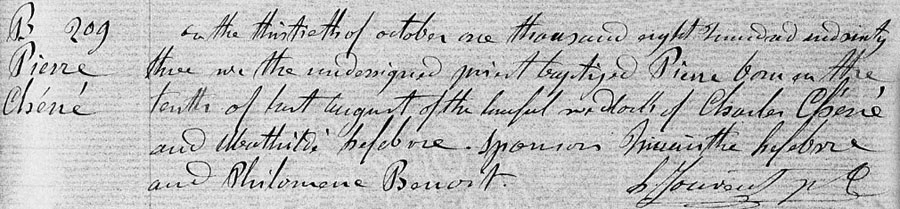 B 209
Pierre
Chéné
on the thirtieth of october one thousand eight hundred and sixty
three we the undersigned priest baptized Pierre born on the
tenth of last august of the lawful wedlock of Charles Chéné
and Mathilde Lefebvre. Sponsors Lefebvre
and Philomene Benoit.